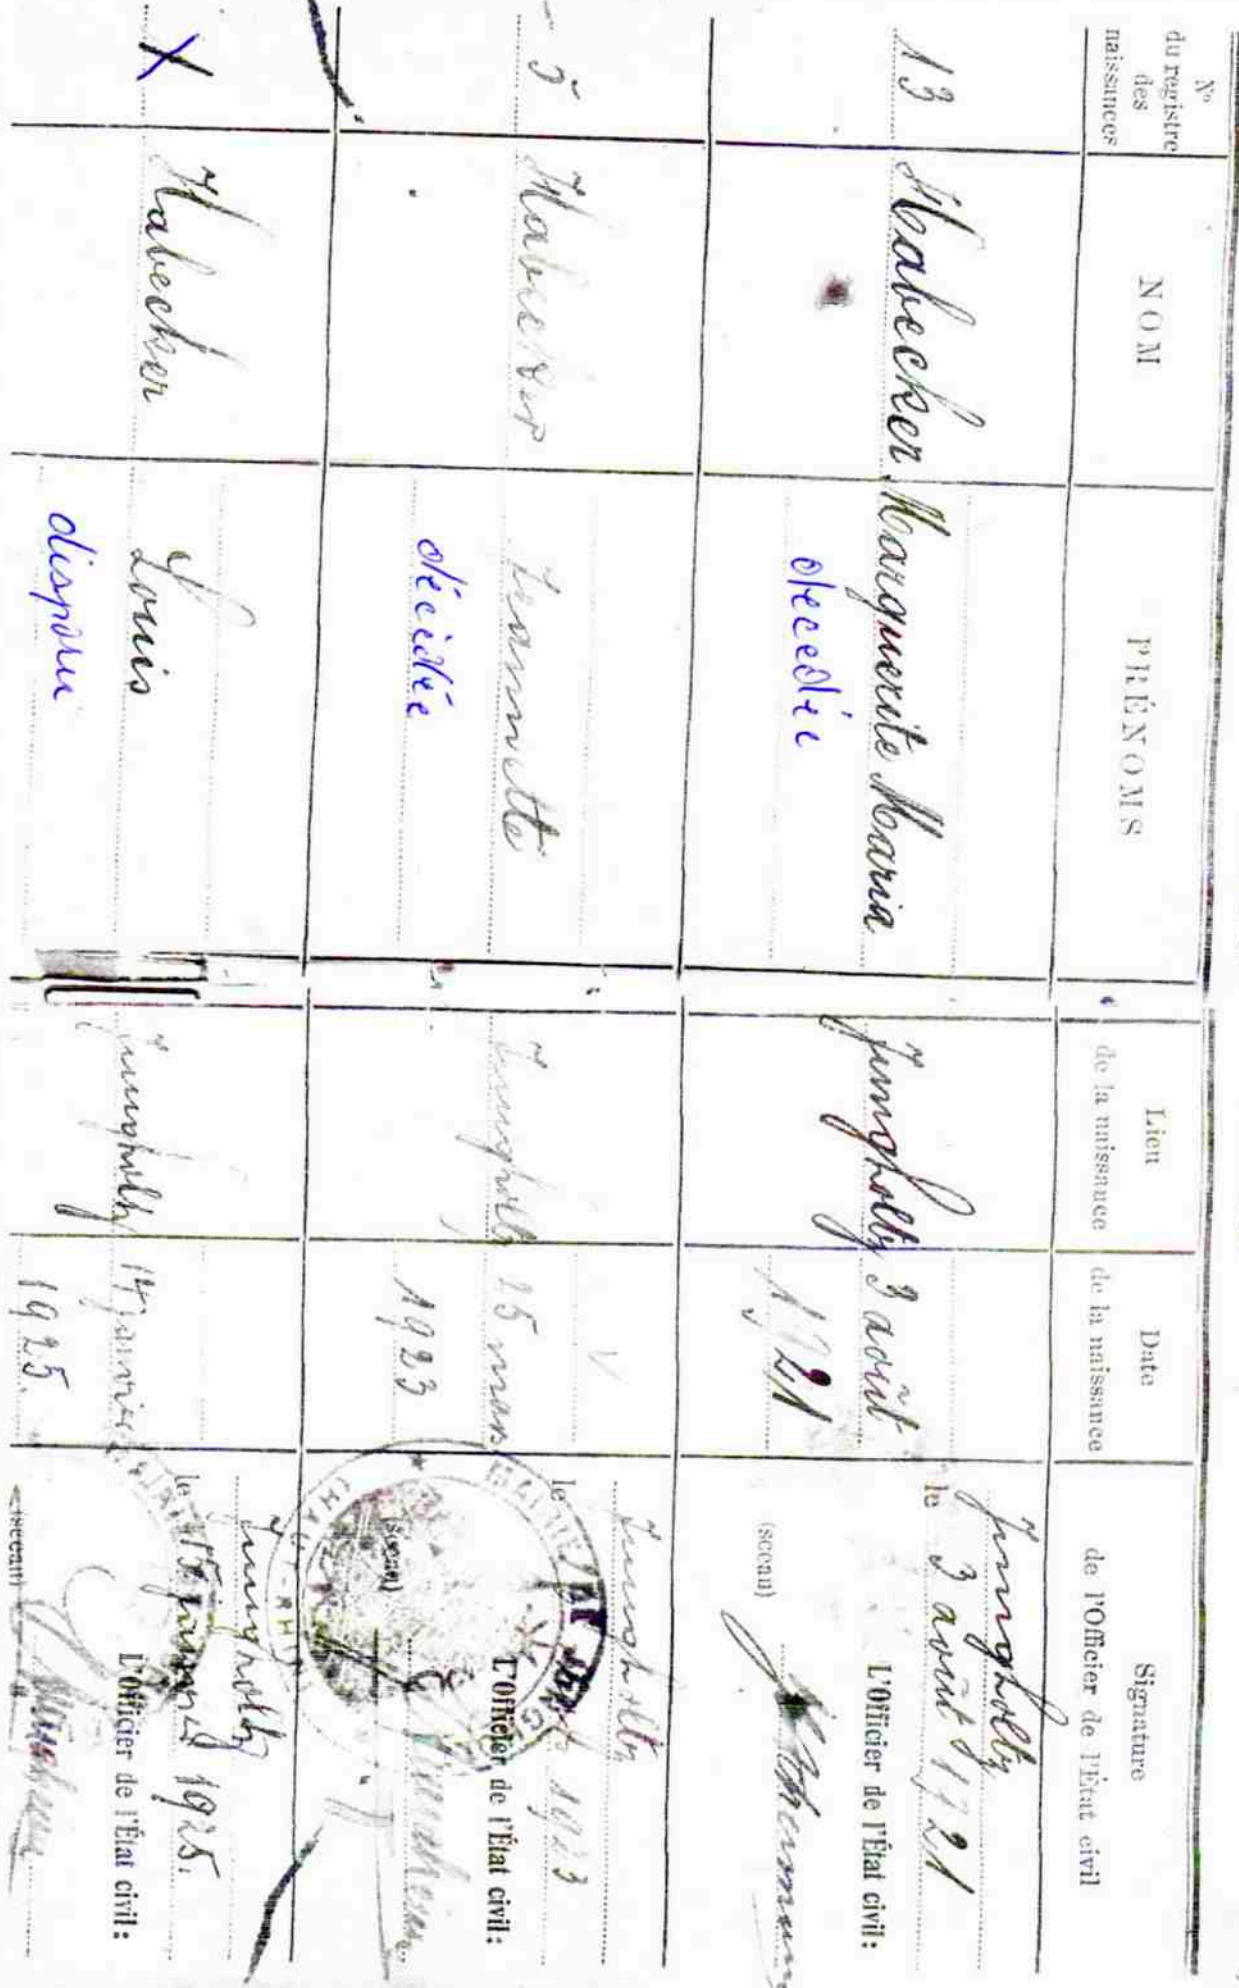 N° du registre des naissances
NOM
PRÉNOMS
Lieu de la naissance
Date de la naissance
Signature de l'Officier de l'État civil
13
Habecker
Marguerite Maria
decedée
Jungholtz
3 août
1921
Jungholtz
le 3 août 1921
L'Officier de l'État civil:
(sceau)
5
Habecker
Jeannette
décédée
Jungholtz
25 mars
1923
Jungholtz
le 1923
L'Officier de l'État civil:
(sceau)
X
Habecker
Louis
disparu
Jungholtz
14 janvier
1925.
Jungholtz
le 15 janvier 1925.
L'Officier de l'État civil:
(sceau)